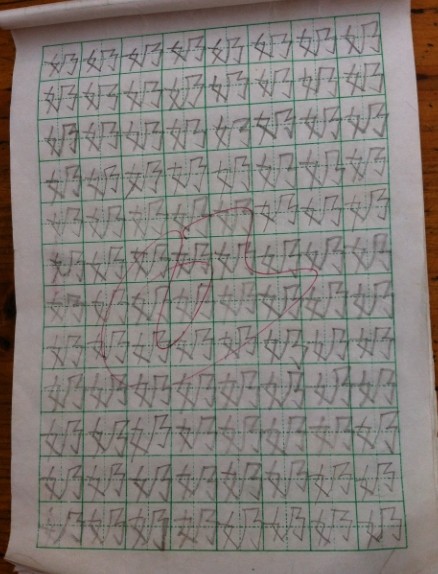 奶奶奶奶奶奶奶奶
奶奶奶奶奶奶奶奶
奶奶奶奶奶奶奶奶
奶奶奶奶奶奶奶奶
奶奶奶奶奶奶奶奶
奶奶奶奶奶奶奶奶
奶奶奶奶奶奶奶奶
奶奶奶奶奶奶奶奶
奶奶奶奶奶奶奶奶
奶奶奶奶奶奶奶奶
奶奶奶奶奶奶奶奶
奶奶奶奶奶奶奶奶